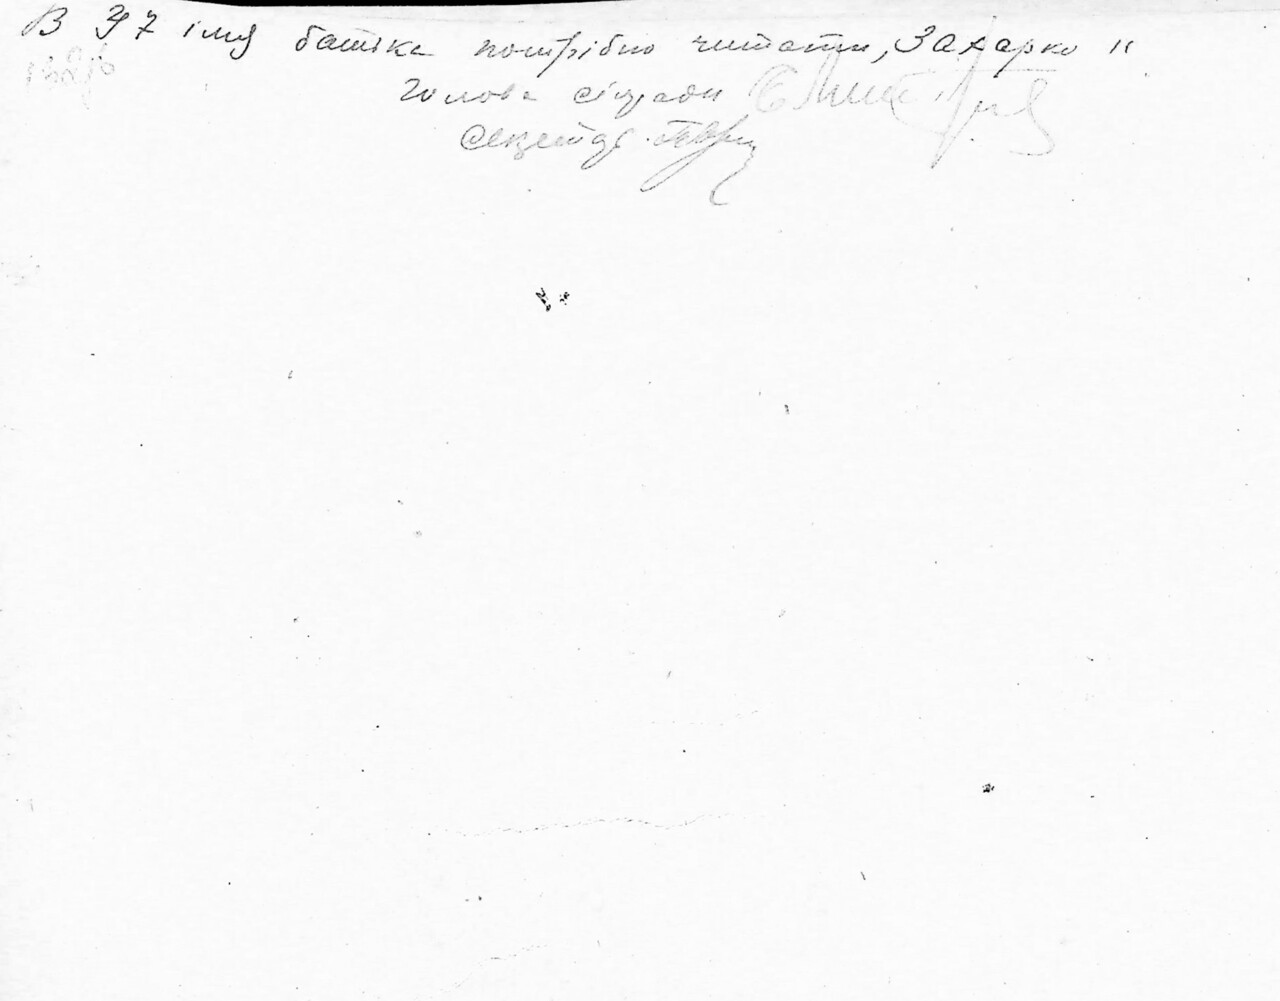 В 47 імя батька потрібно читати „Захарко"
голова сільради
секретар